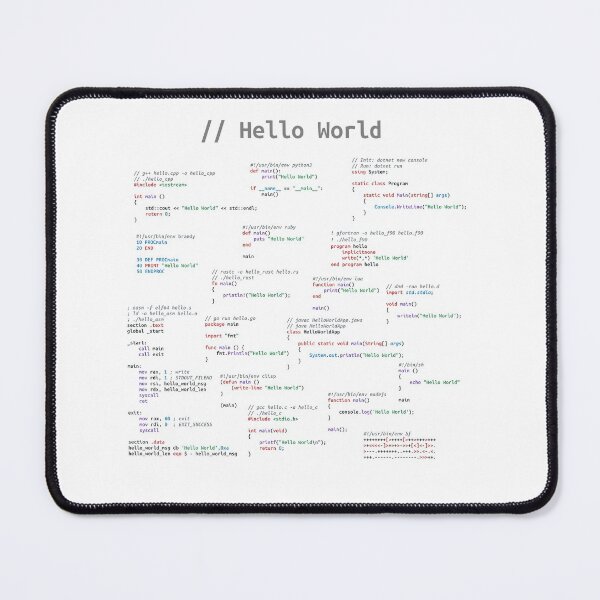 // Hello World
// g++ hello.cpp -o hello_cpp
// ./hello_cpp
#include <iostream>
int main ()
{
std::cout << "Hello World" << std::endl;
return 0;
}
#!/usr/bin/env python3
def main():
print("Hello World")
if __name__ == "__main__":
main()
// Init: dotnet new console
// Run: dotnet run
using System;
static class Program
{
static void main(string[] args)
{
Console.WriteLine("Hello World");
}
}
#!/usr/bin/env brandy
10 PROCmain
20 END
30 DEF PROCmain
40 PRINT "Hello World"
50 ENDPROC
#!/usr/bin/env ruby
def main()
puts "Hello World"
end
main
! gfortran -o hello_f90 hello.f90
! ./hello_f90
program hello
implicitnone
write(*,*) 'Hello World'
end program hello
// rustc -o hello_rust hello.rs
// ./hello_rust
fn main()
{
println!("Hello World");
}
#!/usr/bin/env lua
function main()
print("Hello World")
end
main()
// dmd -run hello.d
import std.stdio;
void main()
{
writeln("Hello World");
}
; nasm -f elf64 hello.s
; ld -o hello_asm hello.o
; ./hello_asm
section .text
global _start
_start:
call main
call exit
main:
mov rax, 1 ; write
mov rdi, 1 ; STDOUT_FILENO
mov rsi, hello_world_msg
mov rdx, hello_world_len
syscall
ret
exit:
mov rax, 60 ; exit
mov rdi, 0 ; EXIT_SUCCESS
syscall
section .data
hello_world_msg db "Hello World",0xa
hello_world_len equ $ - hello_world_msg
// go run hello.go
package main
import "fmt"
func main () {
fmt.Println("Hello World")
}
// javac HelloWorldApp.java
// java HelloWorldApp
class HelloWorldApp
{
public static void main(String[] args)
{
System.out.println("Hello World");
}
}
#!/usr/bin/env clisp
(defun main ()
(write-line "Hello World")
)
(main)
#!/bin/sh
main ()
{
echo "Hello World"
}
main
// gcc hello.c -o hello_c
// ./hello_c
#include <stdio.h>
int main(void)
{
printf("Hello World\n");
return 0;
}
#!/usr/bin/env nodejs
function main()
{
console.log('Hello World');
}
main();
#!/usr/bin/env bf